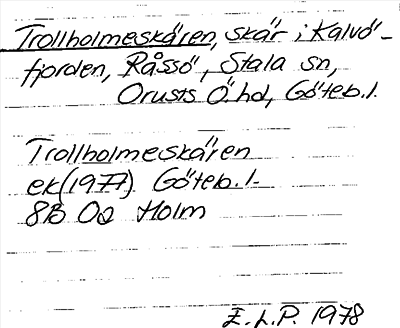 Trollholmeskären, skär i Kalvö-
fjorden, Råssö, Stala sn,
Orusts Ö hd, Göteb. l.
Trollholmeskären
ek (1977) Göteb. l.
8B 0a Holm
E.L.P. 1978